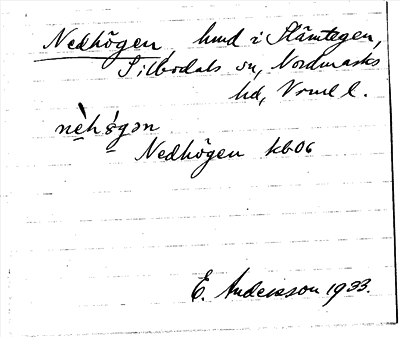 Nedhögen, hmd i Slämtegen,
Silbodals sn, Nordmarks
hd, Vrml l.
nèhǿgən
Nedhögen kboc
E. Andersson 1933.